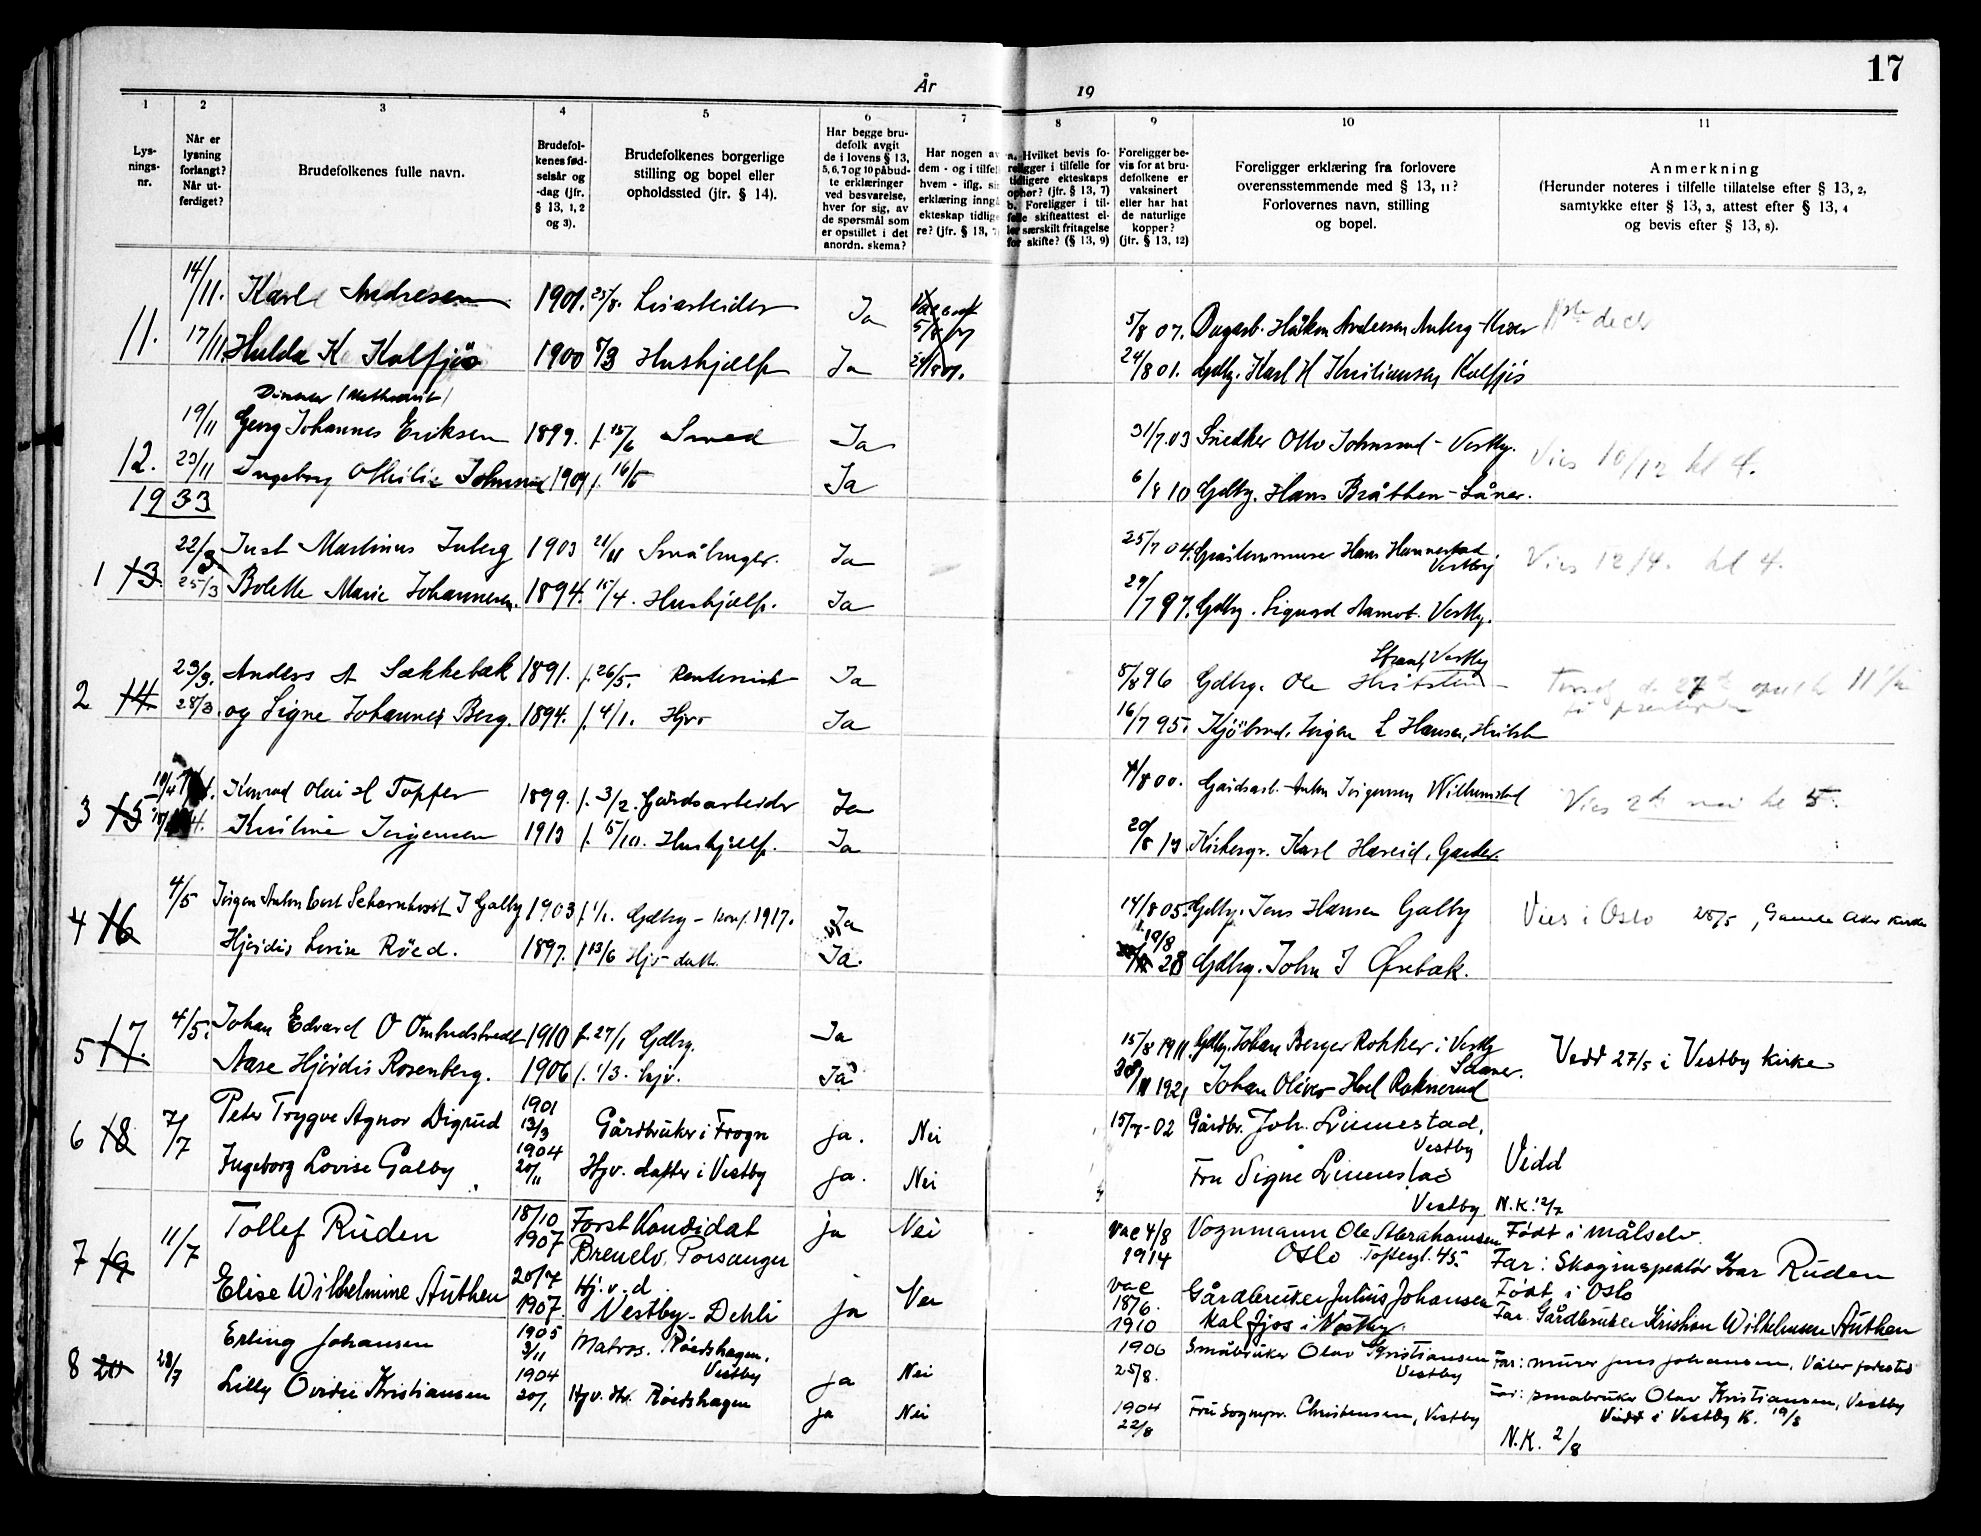 17
År 19
1 2 3 4 5 6 7 8 9 10 11
Lys-
nings-
nr.
Når er
lysning
forlangt?
Når ut-
ferdiget?
Brudefolkenes fulle navn.
Brudefol-
kenes fød-
selsår og
-dag (jfr.
§ 13, 1, 2
og 3).
Brudefolkenes borgerlige
stilling og bopel eller
opholdssted (jfr. § 14).
Har begge bru-
defolk avgit
de i lovens § 13,
5, 6, 7 og 10 påbud-
te erklæringer
ved besvarelse,
hver for sig, av
de spørsmål som
er opstillet i det
anordn. skema?
Har nogen av
dem - og i tilfelle
hvem - iflg. sin
erklæring inngå
ekteskap tidlige-
re? (jfr. § 13,
a. Hvilket bevis fo-
religger i tilfelle for
tidligere ekteskaps
ophør? (jfr. § 13, 7)
b. Foreligger i til-
felle skifteattest el-
ler særskilt fritagelse
for skifte? (§ 13, 9)
Foreligger be-
vis for at bru-
defolkene er
vaksinert
eller har hat
de naturlige
kopper?
(jfr. § 13, 12)
Foreligger erklæring fra forlovere
overensstemmende med § 13, 11?
Forlovernes navn, stilling
og bopel.
Anmerkning
(Herunder noteres i tilfelle tillatelse efter § 13, 2,
samtykke efter § 13, 3, attest efter § 13, 4
og bevis efter § 13, 8).
11. 14/11. Karl Andresen 1901. 25/8. Ja 5/8 07. Håkon Andresen
17/11 Hulda K Kolfjøs 1900 Hushjælp Ja 24/8 01. Gdbr. Karl H Kristiansen Kolfjøs
12. 19/11 Georg Johannes Eriksen 1899. f. 15/6 Smed Ja 31/7.03 Snedker Otto Johnsrud - Vestby. Vies 10/12 kl 4.
23/11 Ingeborg Othilie Johnsrud 1909 f. 16/5 Ja 6/8 10 Gdbr. Hans Bråthen - Såner.
1933
1 13. 22/3 Just Martinus Inberg 1903 21/11 Småbruger. Ja 25/7 04. Hans Hannestad. Vestby Vies 12/4. kl 4.
25/3 Bolette Marie Johannesen. 1894. 15/4. Hushjælp. Ja 29/7 97. Gdbr. Sigurd Aamot. Vestby.
2 14 23/3. Anders A Sækkebæk 1891. f. 26/5. Ja 8/8 96 Gdbr. Ole Vestby
28/3. og Signe Johannes Berg. 1894. f. 4/1. Hjv. Ja 16/7 95. Hansen,
3 15 Konrad Olai H Topper 1899. f. 3/2. Gårdsarbeider Ja 4/8 00. Gårdsarb. Anton Jørgensen Vies 2 mai kl 5.
Kristine Jørgensen 1913 f. 5/10. Hushjælp. Ja 20/8 13 Kirkesgr. Karl Hæreid, Garder.
4 16 4/5 Jørgen Anton Scharnhorst J Galby 1903 f. 1/1. Gdbr - konf. 1917. Ja 14/8 05. Gdbr. Jens Hansen Galby Vies i Oslo 25/5, Gamle Aker kirke
Hjørdis Lovise Röed. 1897. f 13/6 Hjv - datt. Ja. 19/8 28 Gdbr. John J Ørebæk.
5 17. 4/5. Johan Edvard O 1910 f. 27/1 Gdbr. Ja 15/8 1911. Gdbr. Johan Berger Rokker i Vestby Vedd 27/5 i Vestby kirke
Aase Hjördis Rosenberg. 1906 f. 1/3. hjv. Ja 1921 Johan Oliver Saaner.
6 18 7/7 Peter Trygve Agnor Digrud 1901 13/3 Gårdbruker i Frogn ja. Nei 15/7-02 Gårdbr. Joh. Linnestad, Vestby
Ingeborg Lovise Galby 1904 20/11 Hjv. datter i Vestby ja. Nei Fru Signe Linnestad Vestby Vidd N.K. 12/7
7 19 11/7 Tollef Ruden 18/10 1907 Forstkandidat ja Nei vac 4/8 1914 Vognmann Ole Abrahamsen Oslo Toftesgt. 45. Født i Målselv.
Far: Skoginspektør Ivar Ruden
Elise Wilhelmine Authen 20/7 1907. Hj.v.d. Vestby - Dehli ja vac 18/6. 1910 Gårdbruker Julius Johansen Kolfjos i Vestby. Født i Oslo
Far. Gårdbruker Kristian Wilhelmsen Authen
8 20 28/7 Erling Johansen 1905 3/11 Matros. Röedshagen. Vestby ja Nei 1906 25/8. Småbruker Olav Kristiansen Vestby Far: murer Jens Johansen, Våler
Lilly Ovidie Kristiansen 1904 20/1 Hjv. Röedshagen ja Nei 1904 22/8 Fru Sognepr. Christensen, Vestby Far: småbruker Olav Kristiansen, Vestby
Vidd i Vestby K. 19/8
N.K. 2/8